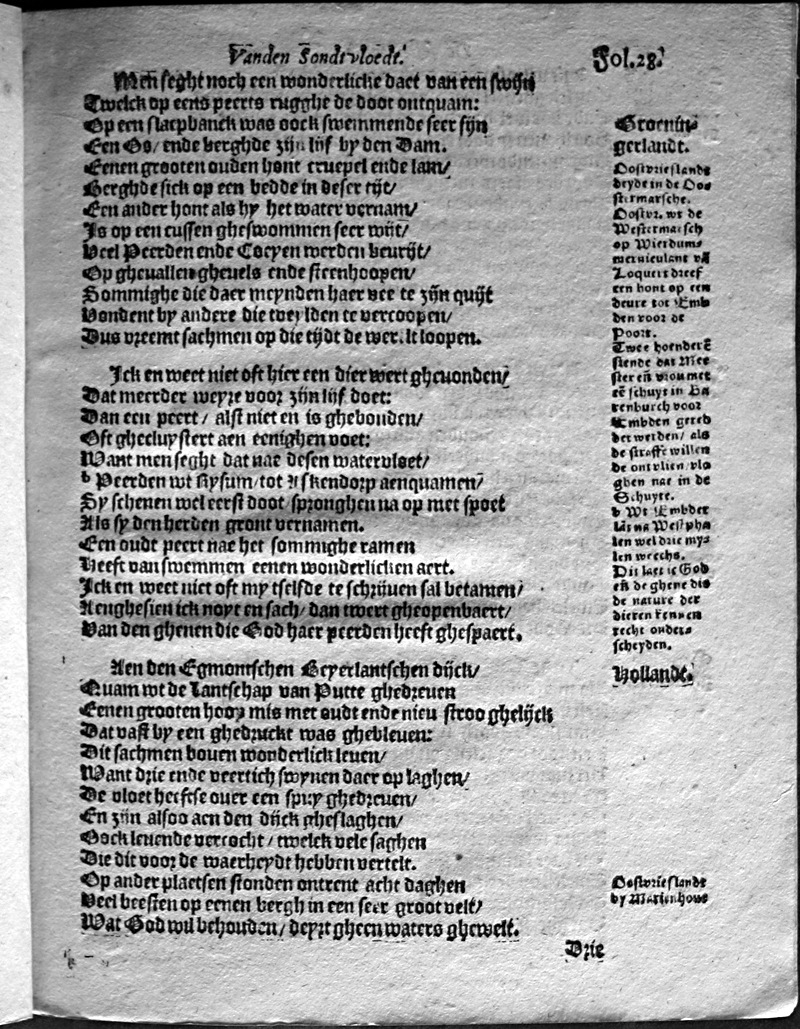 Vanden Sondtvloedt.
Fol. 28.
Men seght noch een wonderlicke daet van een swijn
Twelck op eens peerts rugghe de doot ontquam:
Op een slaepbanck was oock swemmende seer fijn
Een Os/ ende berghde zijn lijf by den Dam.
Eenen grooten ouden hont cruepel ende lam/
Berghde sick op een bedde in deser tijt/
Een ander hont als hy het water vernam/
Is op een cussen gheswommen seer wijt/
Veel Peerden ende Coeyen werden bevrijt/
Op ghevallen ghevels ende steenhoopen/
Sommighe die daer meynden haer vee te zijn quijt
Vondent by andere die weylden te vercoopen/
Dus vreemt sachmen op die tijdt de werelt loopen.
Ick en weet niet oft hier een dier wert ghevonden/
Dat meerder weyre voor zijn lijf doet:
Dan een peert/ alst niet en is ghebonden/
Oft ghecluystert aen eenighen voet:
Want men seght dat nae desen watervloet/
b Peerden wt Rysum/ tot skendorp aenquamen
Sy schenen wel eerst doot/ spronghen na op met spoet
Als sy den herden gront vernamen.
Een oudt peert nae het sommighe ramen
Heeft van swemmen eenen wonderlicken aert.
Ick en weet niet oft my tselfde te schrijven sal betamen/
Aenghesien ick noyt en sach/ dan twert gheopenbaert/
Van den ghenen die God haer peerden heeft ghespaert.
Aen den Egmontschen Beyerlantschen dijck/
Quam wt de Lantschap van Putte ghedreven
Eenen grooten hoop mis met oudt ende nieu stroo ghelijck
Dat vast by een ghedruckt was ghebleven:
Dit sachmen boven wonderlick leven/
Want drie ende veertich swynen daer op laghen/
De vloet heeftse over een spuy ghedreven/
En zijn alsoo aen den dijck gheslaghen/
Oock levende vercocht/ twelck vele saghen
Die dit voor de waerheydt hebben vertelt.
Op ander plaetsen stonden ontrent acht daghen
Veel beesten op eenen bergh in een seer groot velt/
Wat God wil behouden/ deyrt gheen waters ghewelt.
Drie
Groenin-
gerlandt.
Oostvrieslandt
beyde in de Oos
stermarsche.
Oostvr. wt de
Westermarsch
op Wierdums
Loquert dreef
een hont op een
deure tot Emb
den voor de
Poort.
Twee hoenderē
siende dat Mee
ster eñ vrou met
eē schuyt in La
renburch voor
Embden gered
der werden/ als
de straffe willen
de ontvlien/ vlo
ghen nae in de
Schuyte.
b Wt Embder
lāt na Westpha
len wel drie my-
len weechs.
Dit laet ic God
eñ de ghene die
de nature der
dieren kennen
recht onders
scheyden.
Hollandt.
Oostvrieslandt
by Marienhove